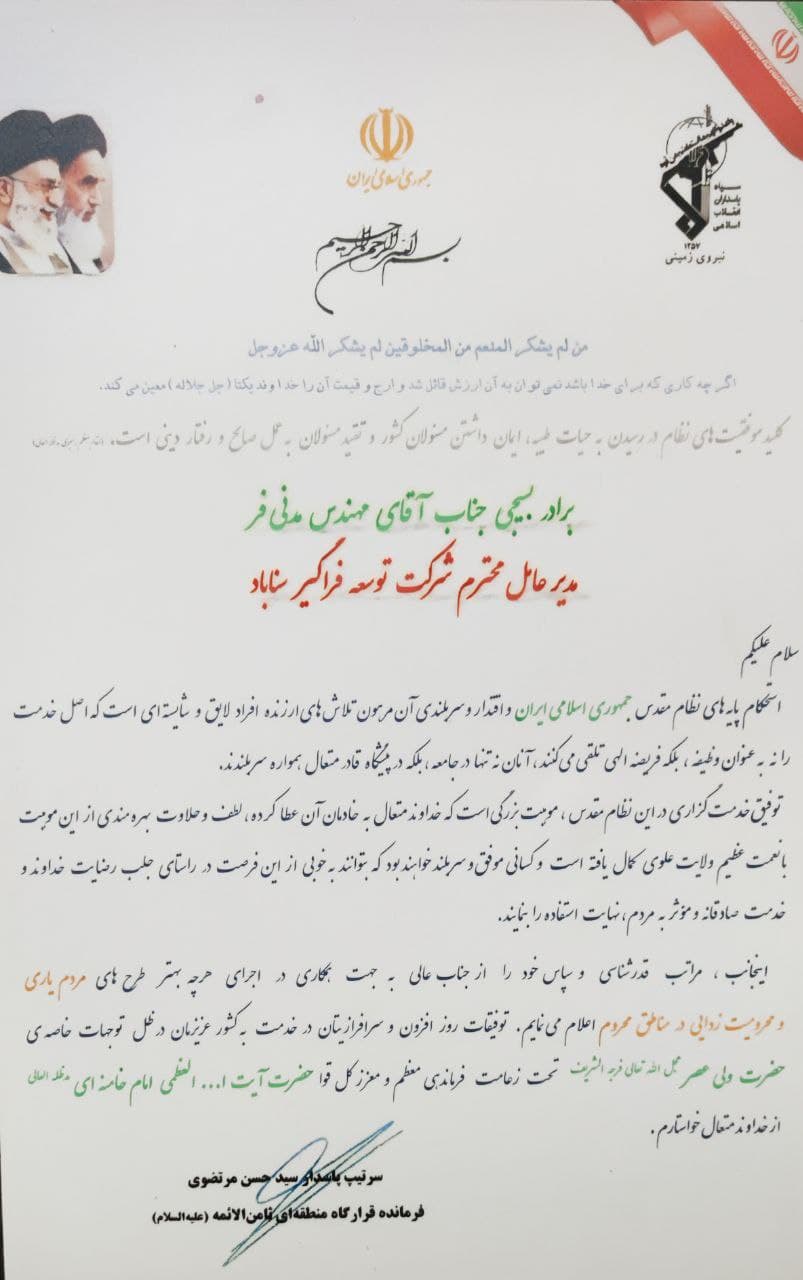 سپاه
پاسداران
انقلاب
اسلامی
۱۳۵۷
نیروی زمینی
جمهوری اسلامی ایران
بسم الله الرحمن الرحیم
من لم یشکر المنعم من المخلوقین لم یشکر الله عزوجل
اگر چه کاری که برای خدا باشد نمی توان به آن ارزش قائل شد و ارج و قیمت آن را خداوند یکتا (جل جلاله) معین می کند.
کلید موفقیت‌های نظام در رسیدن به حیات طیبه، ایمان داشتن مسئولان کشور و تقید مسئولان به عمل صالح و رفتار دینی است.
برادر بسیجی جناب آقای مهندس مدنی فر
مدیر عامل محترم شرکت توسعه فراگیر سناباد
سلام علیکم
استحکام پایه های نظام مقدس جمهوری اسلامی ایران و اقتدار و سربلندی آن مرهون تلاش های ارزنده افراد لایق و شایسته ای است که اصل خدمت
را نه به عنوان وظیفه، بلکه فریضه الهی تلقی می کنند، آنان نه تنها در جامعه، بلکه در پیشگاه قادر متعال همواره سربلندند.
توفیق خدمت گزاری در این نظام مقدس، موهبت بزرگی است که خداوند متعال به خادمان آن عطا کرده، لطف و حلاوت بهره مندی از این موهبت
با نعمت عظیم ولایت علوی کمال یافته است و کسانی موفق و سربلند خواهند بود که بتوانند به خوبی از این فرصت در راستای جلب رضایت خداوند و
خدمت صادقانه و مؤثر به مردم، نهایت استفاده را بنمایند.
اینجانب، مراتب قدرشناسی و سپاس خود را از جناب عالی به جهت همکاری در اجرای هرچه بهتر طرح های مردم یاری
و محرومیت زدایی در مناطق محروم اعلام می نمایم. توفیقات روز افزون و سرافرازیتان در خدمت به کشور عزیزمان در ظل توجهات خاصه ی
حضرت ولی عصر عجل الله تعالی فرجه الشریف تحت زعامت فرماندهی معظم و معزز کل قوا حضرت آیت ا... العظمی امام خامنه ای مدظله العالی
از خداوند متعال خواستارم.
سرتیپ پاسدار سید حسن مرتضوی
فرمانده قرارگاه منطقه‌ای ثامن‌الائمه (علیه‌السلام)